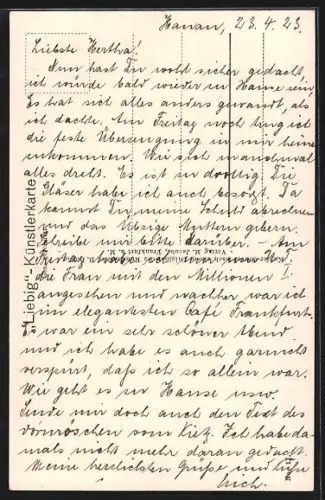 Hanau, 23.4.23.
Liebste Hertha!
Nun hast Du wohl sicher gedacht,
ich würde bald wieder zu Hause sein.
Es hat sich alles anders gewandt, als
ich dachte. Am Freitag noch trug ich
die feste Überzeugung in mir heim
zukommen. Wie sich manchmal
alles dreht. Es ist zu drollig. Die
Gläser habe ich auch besorgt. Da
kannst Du meine Schuld abrechnen
und das Übrige Muttern geben.
Schreibe mir bitte darüber. - Am
Freitag habe ich mir
die Frau mit den Millionen I.
angesehen und nachher war ich
im elegantesten Café Frankfurt.
Es war ein sehr schöner Abend
und ich habe es auch garnicht
verspürt, daß ich so allein war.
Wie geht es zu Hause usw.
Sende mir doch auch den Text des
Dornröschen vom Kietz. Ich habe da-
mals nicht mehr daran gedacht.
Meine herzlichsten Grüße und Küsse
"Liebig" Künstlerkarte